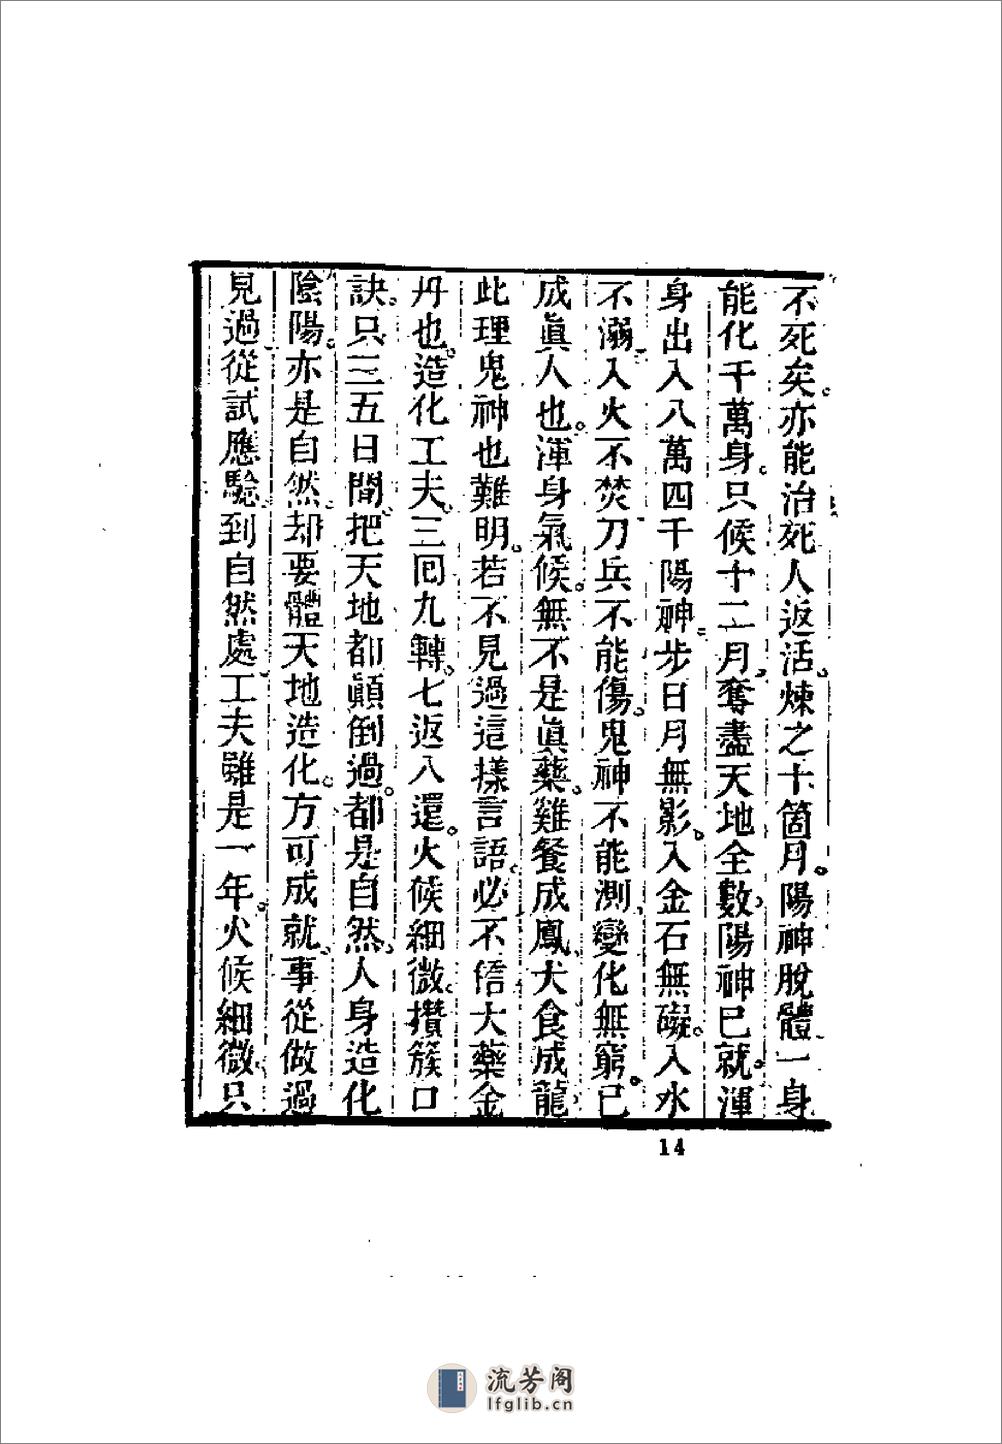 不死矣。亦能治死人返活。煉之十箇月。陽神脫體。一身
能化千萬身。只候十二月。奪盡天地全數。陽神已就。渾
身出入八萬四千陽神。步日月無影。入金石無礙。入水
不溺。入火不焚。刀兵不能傷。鬼神不能測。變化無窮。已
成眞人也。渾身氣候。無不是眞藥。雞餐成鳳。犬食成龍。
此理鬼神也難明。若不見過這樣言語。必不信大藥金
丹也。造化工夫。三回九轉。七返八還。火候細微。攢簇口
訣。只三五日間。把天地都顚倒過。都是自然。人身造化
陰陽。亦是自然。却要體天地造化。方可成就。事從做過
見過。從試應驗。到自然處。工夫雖是一年。火候細微。只
14
流芳阁
lfglib.cn